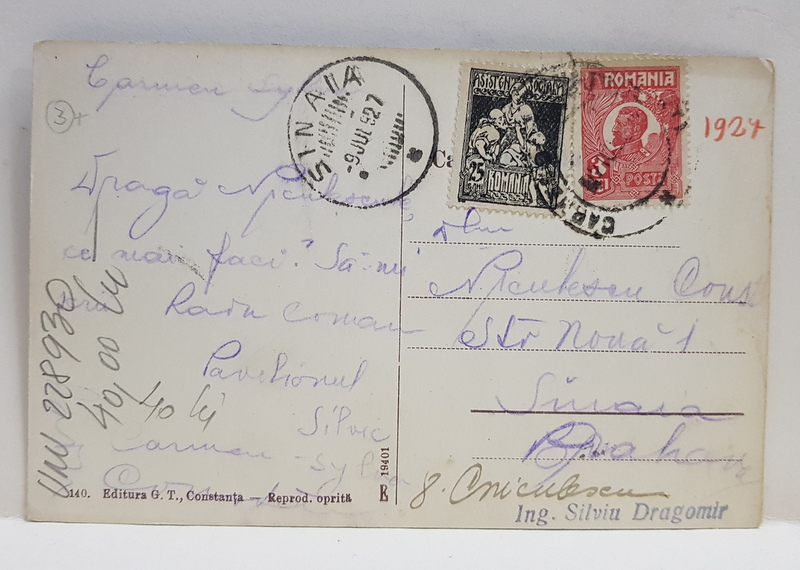 Carmen Sy
3
SINAIA
-9 JUL 927
ASISTENȚA SOCIALA
25
ROMANIA
ROMANIA
POSTA
CAR
1927
Dragă Niculescule,
ce mai faci? Să-mi
Radu Coman
Pavilionul
Silvic
Carmen
Sylva
Dlui
Niculescu Cons
Str Nouă 1
Sinaia
Prahova
228930
40,00 lei
40 lei
140. Editura G. T., Constanța — Reprod. oprită
19401
Ing. Silviu Dragomir